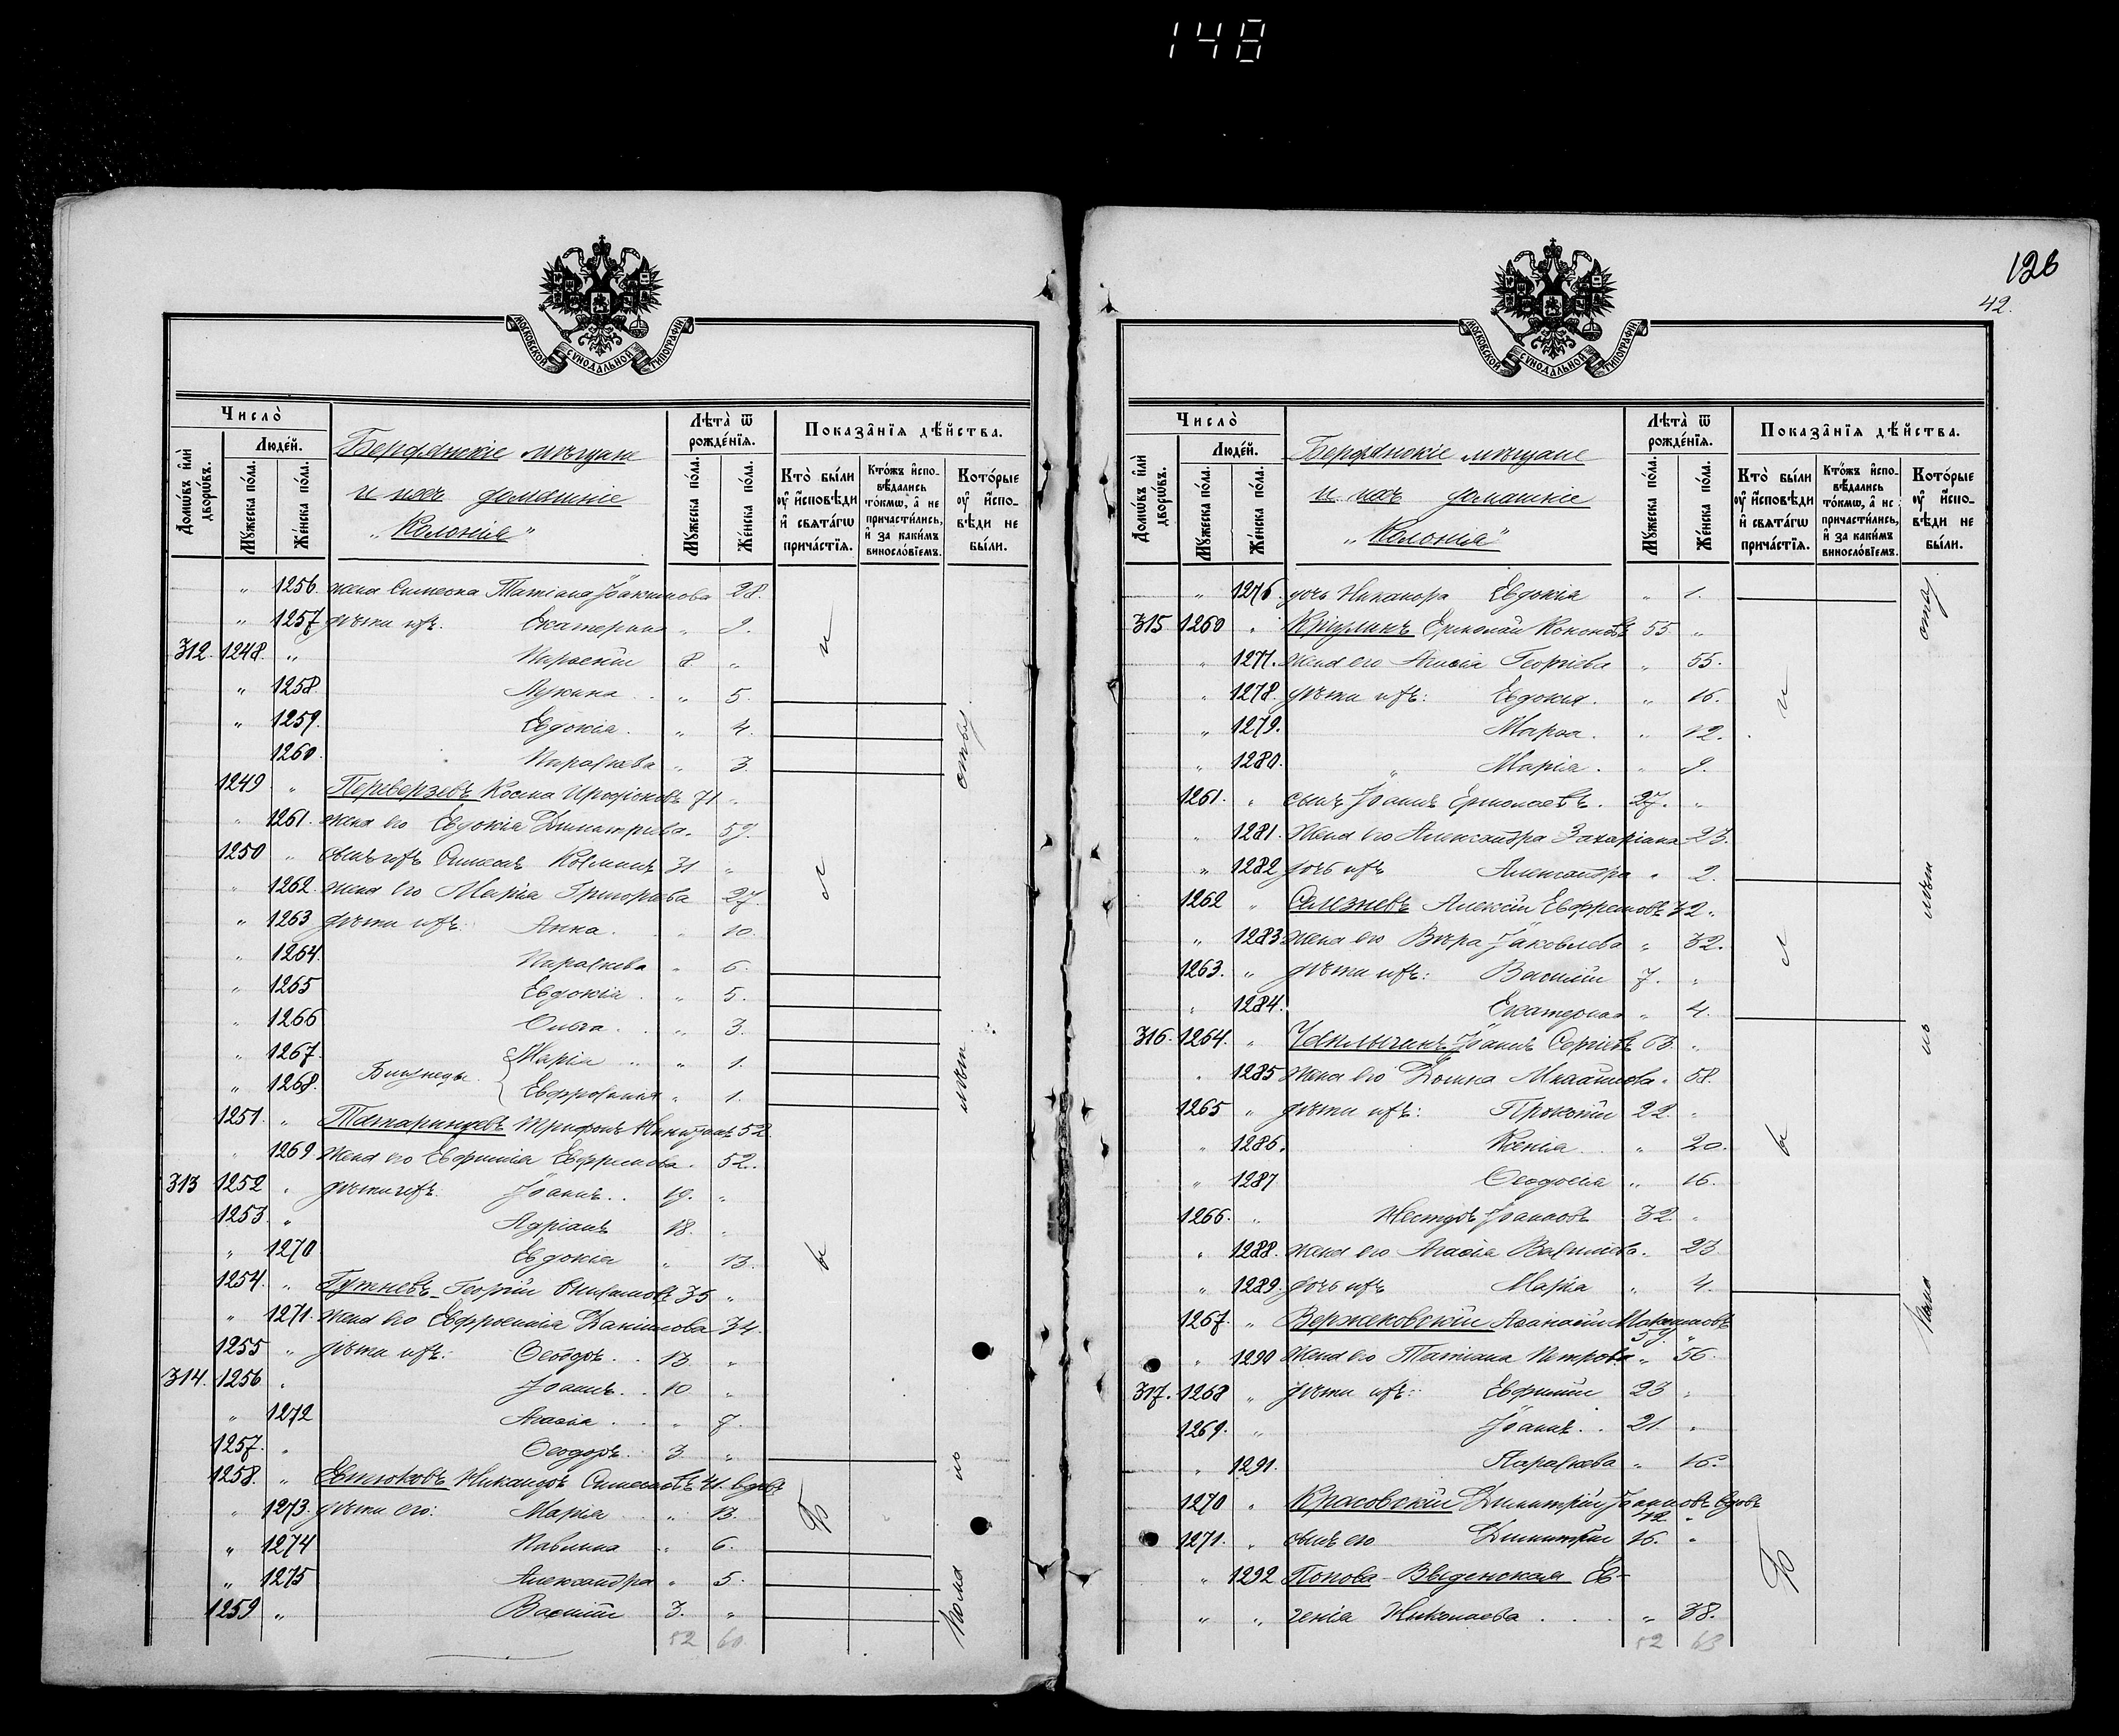 148
МОСКОВСКОЙ СУНОДАЛЬНОЙ ТИПОГРАФІИ
Число̀
Домѡ́въ и҆лѝ дворѡ́въ.
Люде́й.
Мꙋ́жеска по́ла.
Же́нска по́ла.
Бердянскіе мѣщане
и ихъ домашніе
„Колонія“
Лѣта̀ ѿ рожде́нїя.
Мꙋ́жеска по́ла.
Же́нска по́ла.
Показа̑нїя дѣ́йства.
Кто̀ бы́ли ᲂу҆ и҆сповѣ́ди и҆ свята́гѡ прича́стїя.
Кто́жъ и҆спо-вѣ́дались то́кмѡ, а҆ не причасти́лись, и҆ за каки́мъ винослóвїемъ.
Кото́рые ᲂу҆ и҆спо-вѣ́ди не бы́ли.
„ 1256. жена Симеона Татіана Іоакимова 28.
„ 1257 дѣти ихъ. Екатерина „ 9.
312. 1248. „ 8. „
„ 1258. „ 5.
„ 1259. Евдокія. „ 4.
1260. Параскева „ 3.
1249 „ Переверзевъ Косма 71 „
„ 1261. жена его Евдокія Димитріева. 59.
1250 „ сынъ ихъ Симеонъ Косминъ 31 „
„ 1262. жена его Марія Григорьева 27.
„ 1263 дѣти ихъ: Анна. „ 10.
„ 1264. Параскева „ 6.
„ 1265 Евдокія. „ 5.
„ 1266 Ольга. „ 3.
„ 1267. Марія „ 1.
„ 1268. Близнецы. Евфросинія „ 1.
1251. „ Трифонъ 52.
„ 1269 жена его Евфимія Ефремова. 52.
313 1252 „ дѣти ихъ. Іоаннъ. 19. „
1253. „ Адріанъ 18. „
„ 1270 Евдокія „ 13.
1254. „ Георгій 35 „
„ 1271. жена его Евфросинія Даніилова 34.
1255 „ дѣти ихъ: Ѳеодоръ. 13 „
314. 1256 „ Іоаннъ. 10 „
„ 1272 Агаѳія. „ 7.
1257. „ Ѳеодоръ. 3 „
1258. „ Евтюховъ Никандръ Симеоновъ 41. вдовъ
„ 1273. дѣти его: Марія „ 13.
„ 1274 Павлина „ 6.
„ 1275 Александра „ 5.
1259 „ Василій 3. „
52 60
и
л
ы
Б
126
42.
МОСКОВСКОЙ СУНОДАЛЬНОЙ ТИПОГРАФІИ
Число̀
Домѡ́въ и҆лѝ дворѡ́въ.
Люде́й.
Мꙋ́жеска по́ла.
Же́нска по́ла.
Бердянскіе мѣщане
и ихъ домашніе
„Колонія“
Лѣта̀ ѿ рожде́нїя.
Мꙋ́жеска по́ла.
Же́нска по́ла.
Показа̑нїя дѣ́йства.
Кто̀ бы́ли ᲂу҆ и҆сповѣ́ди и҆ свята́гѡ прича́стїя.
Кто́жъ и҆спо-вѣ́дались то́кмѡ, а҆ не причасти́лись, и҆ за каки́мъ винослóвїемъ.
Кото́рые ᲂу҆ и҆спо-вѣ́ди не бы́ли.
„ 1276. дочь Никанора Евдокія „ 1.
315 1260 „ Ермолай 55. „
„ 1277. жена его Агаѳія Георгіева „ 55.
„ 1278. дѣти ихъ: Евдокія. „ 16.
„ 1279. Марѳа. „ 12.
„ 1280. „ Марія. „ 9.
1261. „ сынъ Іоаннъ Ермолаевъ. 27. „
„ 1281. жена его Александра Захаріина 23.
„ 1282 дочь ихъ Александра „ 2.
1262 „ Селезневъ Алексій Ефремовъ 32 „
„ 1283 жена его Вѣра Іаковлева „ 32.
1263. „ дѣти ихъ: Василій 7. „
„ 1284. Екатерина „ 4.
316. 1264. „ Іоаннъ Сергіевъ 63 „
„ 1285 жена его Домна Михайлова. 58.
1265 „ дѣти ихъ: Прокопій 22 „
„ 1286. Ксенія „ 20.
„ 1287 Ѳеодосія „ 16.
1266. „ Несторъ Іоанновъ 32 „
„ 1288. жена его Агаѳія Васильева. 23
„ 1289. дочь ихъ Марія „ 4.
1267. „ Вержековскій Аѳанасій Максимовъ 59. „
„ 1290 жена его Татіана Петрова „ 56.
317. 1268 „ дѣти ихъ: Евфимій 23 „
1269. „ Іоаннъ. 21. „
„ 1291. Параскева „ 16.
1270 „ Красовскій Димитрій Іоанновъ вдовъ 42. „
1271. „ сынъ его Димитрій 16. „
„ 1292 Попова-Введенская Ев-
„ „ генія Николаева „ 38.
52 63
и
л
ы
Б